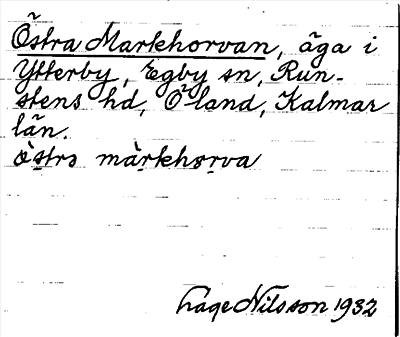 Östra Markhorvan, äga i
Ytterby, Egby sn, Run-
stens hd, Öland, Kalmar
län.
ö̀stro màrkhorva
Lage Nilsson 1932